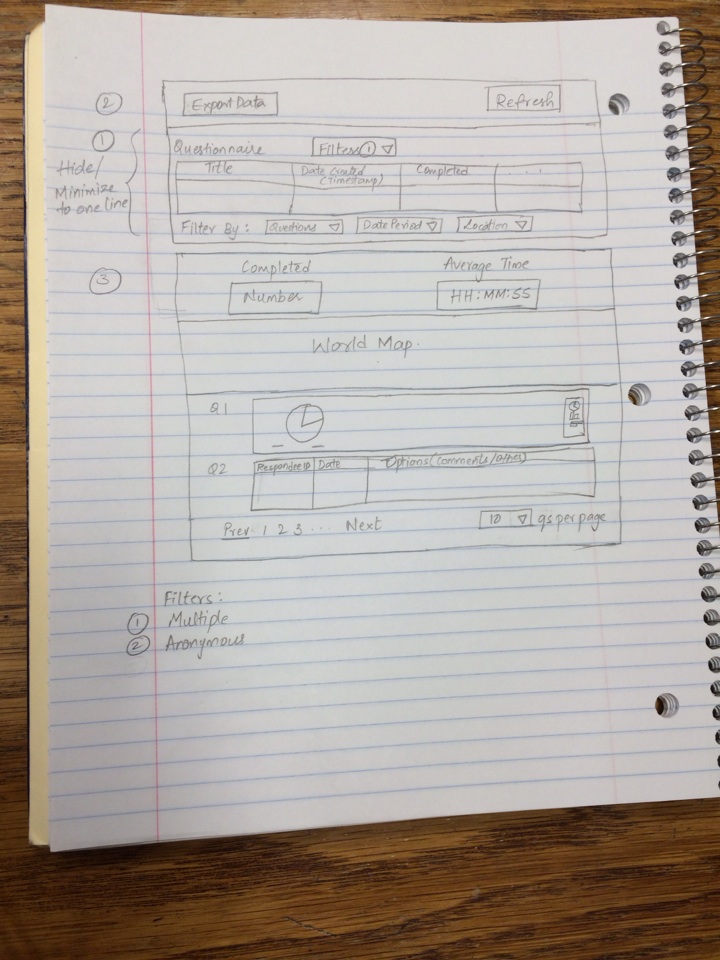 ② Export Data Refresh
① Questionnaire Filters ① ▽
Hide/
Minimize
to one line
Title Date Created (Timestamp) Completed . . .
Filter By: Questions ▽ Date Period ▽ Location ▽
③ Completed Average Time
Number HH:MM:SS
World Map.
Q1
Q2 Respondee ID Date Options (Comments/Other)
Prev 1 2 3 ... Next 10 ▽ qs per page
Filters:
① Multiple
② Anonymous